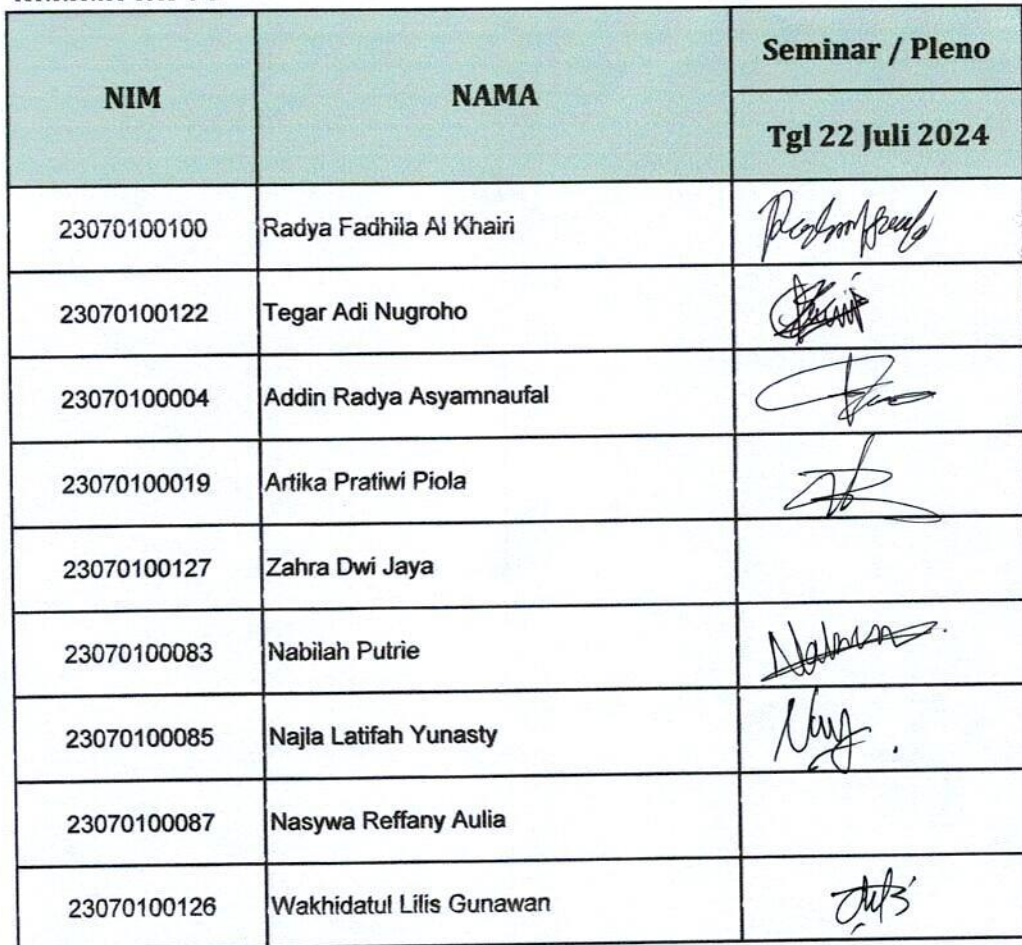 NIM NAMA Seminar / Pleno
Tgl 22 Juli 2024
23070100100 Radya Fadhila Al Khairi
23070100122 Tegar Adi Nugroho
23070100004 Addin Radya Asyamnaufal
23070100019 Artika Pratiwi Piola
23070100127 Zahra Dwi Jaya
23070100083 Nabilah Putrie
23070100085 Najla Latifah Yunasty
23070100087 Nasywa Reffany Aulia
23070100126 Wakhidatul Lilis Gunawan